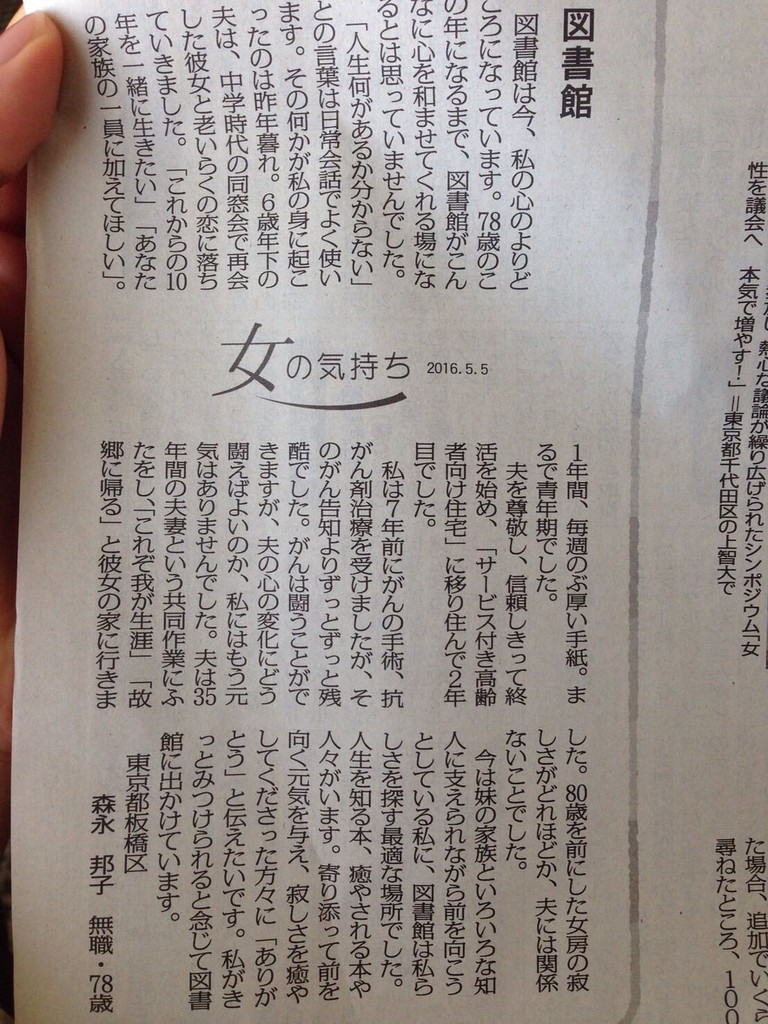 図書館
図書館は今、私の心のよりど
ころになっています。78歳のこ
の年になるまで、図書館がこん
なに心を和ませてくれる場にな
るとは思っていませんでした。
「人生何があるか分からない」
との言葉は日常会話でよく使い
ます。その何かが私の身に起こ
ったのは昨年暮れ。6歳年下の
夫は、中学時代の同窓会で再会
した彼女と老いらくの恋に落ち
ていきました。「これからの10
年を一緒に生きたい」「あなた
の家族の一員に加えてほしい」。
女の気持ち 2016.5.5
1年間、毎週のぶ厚い手紙。ま
るで青年期でした。
夫を尊敬し、信頼しきって終
活を始め、「サービス付き高齢
者向け住宅」に移り住んで2年
目でした。
私は7年前にがんの手術、抗
がん剤治療を受けましたが、そ
のがん告知よりずっとずっと残
酷でした。がんは闘うことがで
きますが、夫の心の変化にどう
闘えばよいのか、私にはもう元
気はありませんでした。夫は35
年間の夫妻という共同作業にふ
たをし、「これぞ我が生涯」「故
郷に帰る」と彼女の家に行きま
した。80歳を前にした女房の寂
しさがどれほどか、夫には関係
ないことでした。
今は妹の家族といろいろな知
人に支えられながら前を向こう
としている私に、図書館は私ら
しさを探す最適な場所でした。
人生を知る本、癒やされる本や
人々がいます。寄り添って前を
向く元気を与え、寂しさを癒や
してくださった方々に「ありが
とう」と伝えたいです。私がき
っとみつけられると念じて図書
館に出かけています。
東京都板橋区
森永 邦子 無職・78歳
性を議会へ 本気で増やす！」＝東京都千代田区の上智大で
熱心な議論が繰り広げられたシンポジウム「女
た場合、追加でいくら
尋ねたところ、100